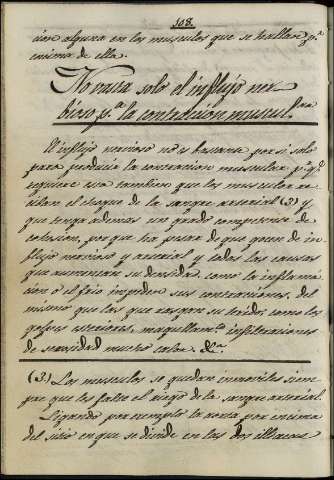 108.
cion alguna en los musculos que se hallan pr.
encima de ella.
No vasta solo el influjo ner-
bioso p.ª la contracion muscul.ar
El influjo nervioso no es bastante por si solo
para producir la contracion muscular, p.s q.e
requiere esta tambien que los musculos re-
ciban el choque de la sangre arterial (3) y
que tenga ademas un grado competente de
cohesion, porque ha pesar de que gocen de in-
flujo nervioso y arterial y todas las causas
que aumentan su densidad, como la inflama-
cion ó el frio impiden sus contraciones, del
mismo que las que rasgan su tejido como los
golpes esteriores, magullam.tos infiltraciones
de serosidad mucho calor &.ª
(3.) Los musculos se quedan inmoviles siem-
pre que les falta el riego de la sangre arterial.
Ligando por exemplo la aorta por encima
del sitio en que se divide en las dos illiacas